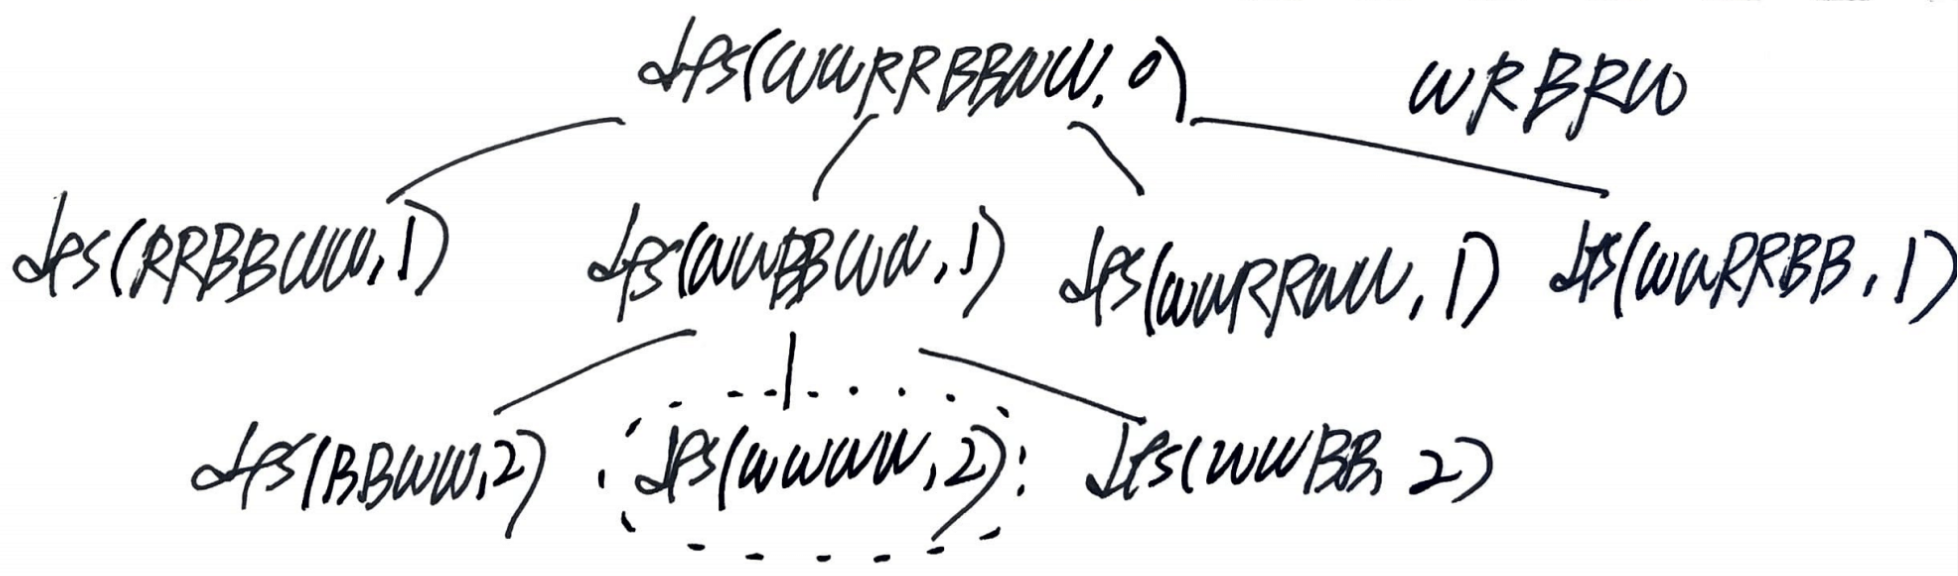 dfs(WWRRBBWW, 0) WRBRW
dfs(RRBBWW, 1) dfs(WWBBWW, 1) dfs(WWRRWW, 1) dfs(WWRRBB, 1)
dfs(BBWW, 2) dfs(WWWW, 2) dfs(WWBB, 2)